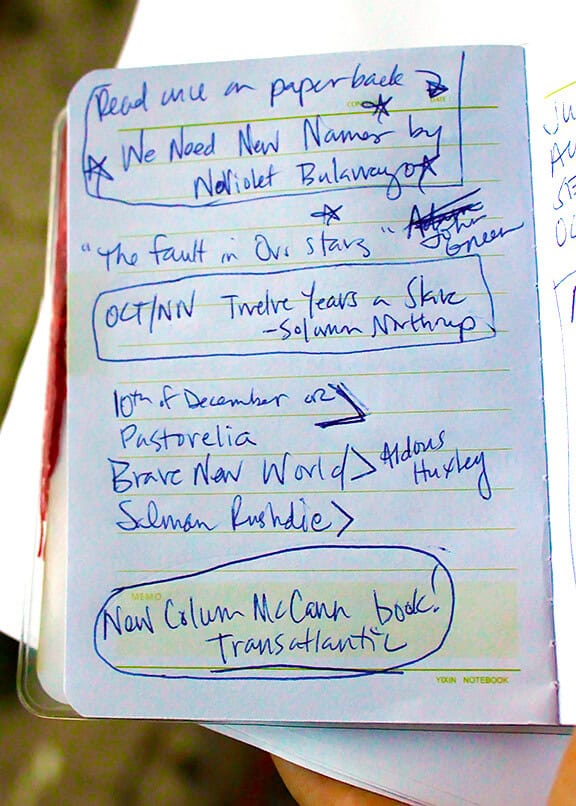 Read once on paperback
DATE
We Need New Names by
NoViolet Bulawayo
"The Fault in Our Stars" John
Green
OCT/NN Twelve Years a Slave
-Solomon Northrup
10th of December or
Pastorelia
Brave New World > Aldous
Huxley
Salman Rushdie >
MEMO
New Colum McCann book!
Transatlantic
YIXIN NOTEBOOK